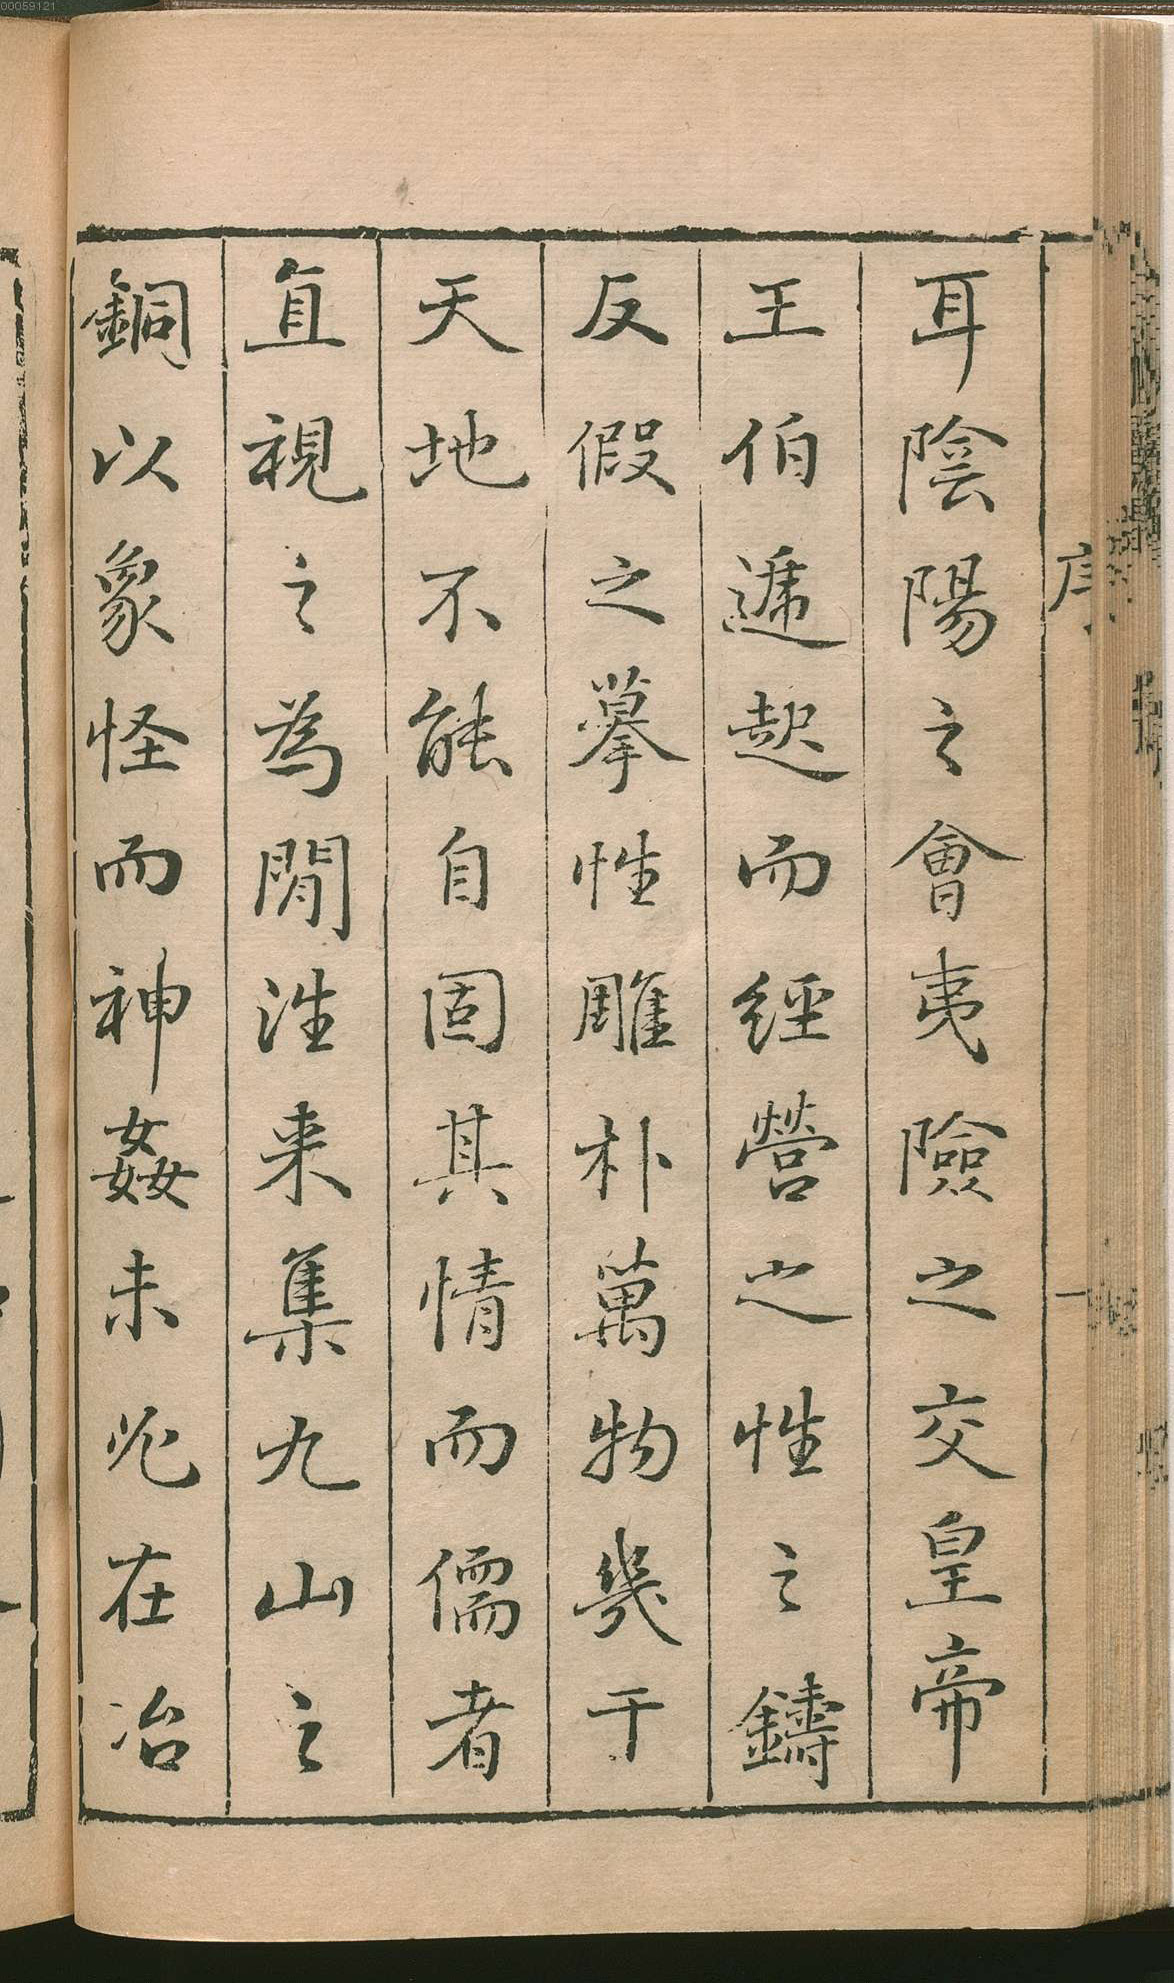 00059121
序
一
耳陰陽之會夷險之交皇帝
王伯遞起而經營之性之鑄
反假之摹性雕朴萬物幾于
天地不能自固其情而儒者
直視之為閒泩来集九山之
銅以象怪而神姦未兆在冶